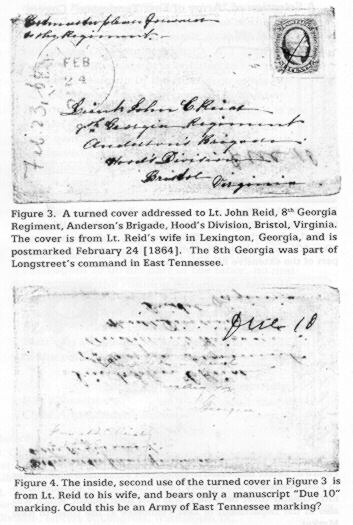 Postmaster please forward
to the Regiment
FEB
24
Feb 23, 64
Lieut John C Reid
8th Georgia Regiment
Anderson's Brigade
Hood's Division
Bristol
Virginia
Figure 3. A turned cover addressed to Lt. John Reid, 8th Georgia
Regiment, Anderson's Brigade, Hood's Division, Bristol, Virginia.
The cover is from Lt. Reid's wife in Lexington, Georgia, and is
postmarked February 24 [1864]. The 8th Georgia was part of
Longstreet's command in East Tennessee.
Due 10
Figure 4. The inside, second use of the turned cover in Figure 3 is
from Lt. Reid to his wife, and bears only a manuscript "Due 10"
marking. Could this be an Army of East Tennessee marking?